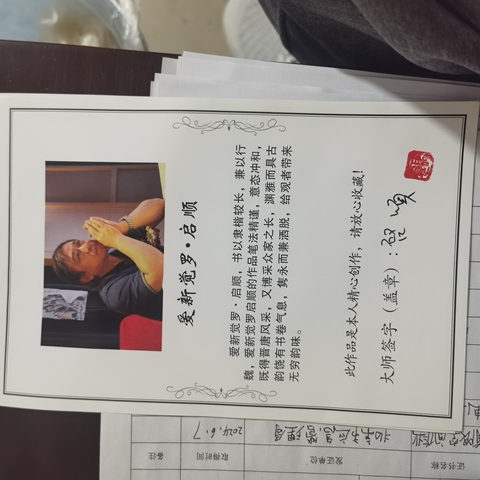 爱新觉罗·启顺
爱新觉罗·启顺，书以隶楷较长，兼以行
魏，爱新觉罗启顺的作品笔法精道，意态冲和，
既得晋唐风采，又博采众家之长，渊雅而具古
韵饶有书卷气息，隽永而兼洒脱，给观者带来
无穷韵味。
此作品是本人精心创作，请放心收藏！
大师签字（盖章）：启顺
证书名称
发证单位
取得时间
备注
2024.6.7